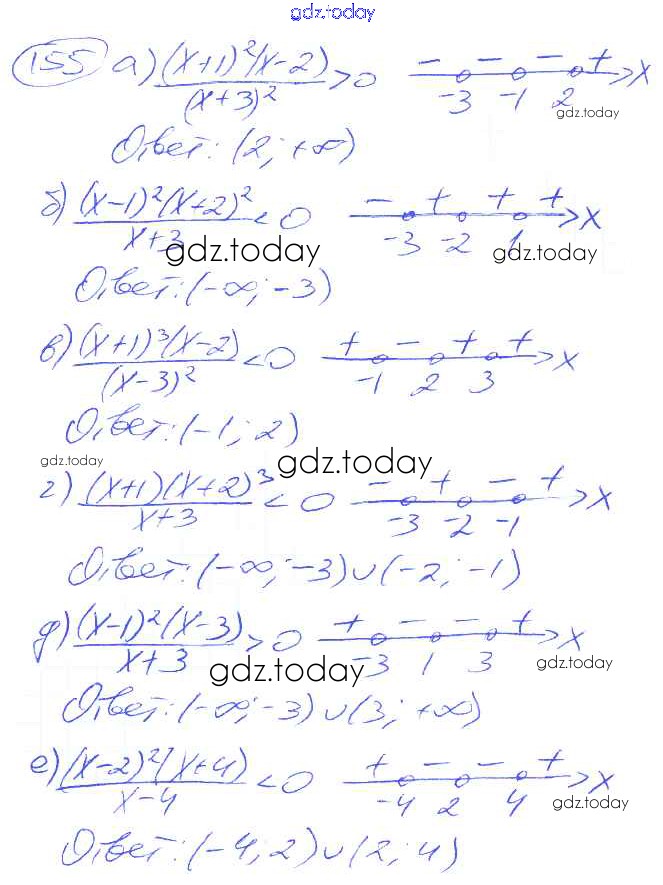 gdz.today
155 а) (x+1)²(x-2)/(x+3)² > 0 - - - + x
-3 -1 2
gdz.today
Ответ: (2; +∞)
б) (x-1)²(x+2)²/x+3 < 0 - + + + x
-3 -2 1
gdz.today gdz.today
Ответ: (-∞; -3)
в) (x+1)³(x-2)/(x-3)² < 0 + - + + x
-1 2 3
Ответ: (-1; 2)
gdz.today gdz.today
г) (x+1)(x+2)³/x+3 < 0 - + - + x
-3 -2 -1
Ответ: (-∞; -3)∪(-2; -1)
д) (x-1)²(x-3)/x+3 > 0 + - - + x
-3 1 3
gdz.today gdz.today
Ответ: (-∞; -3)∪(3; +∞)
е) (x-2)²(x+4)/x-4 < 0 + - - + x
-4 2 4
gdz.today
Ответ: (-4; 2)∪(2; 4)